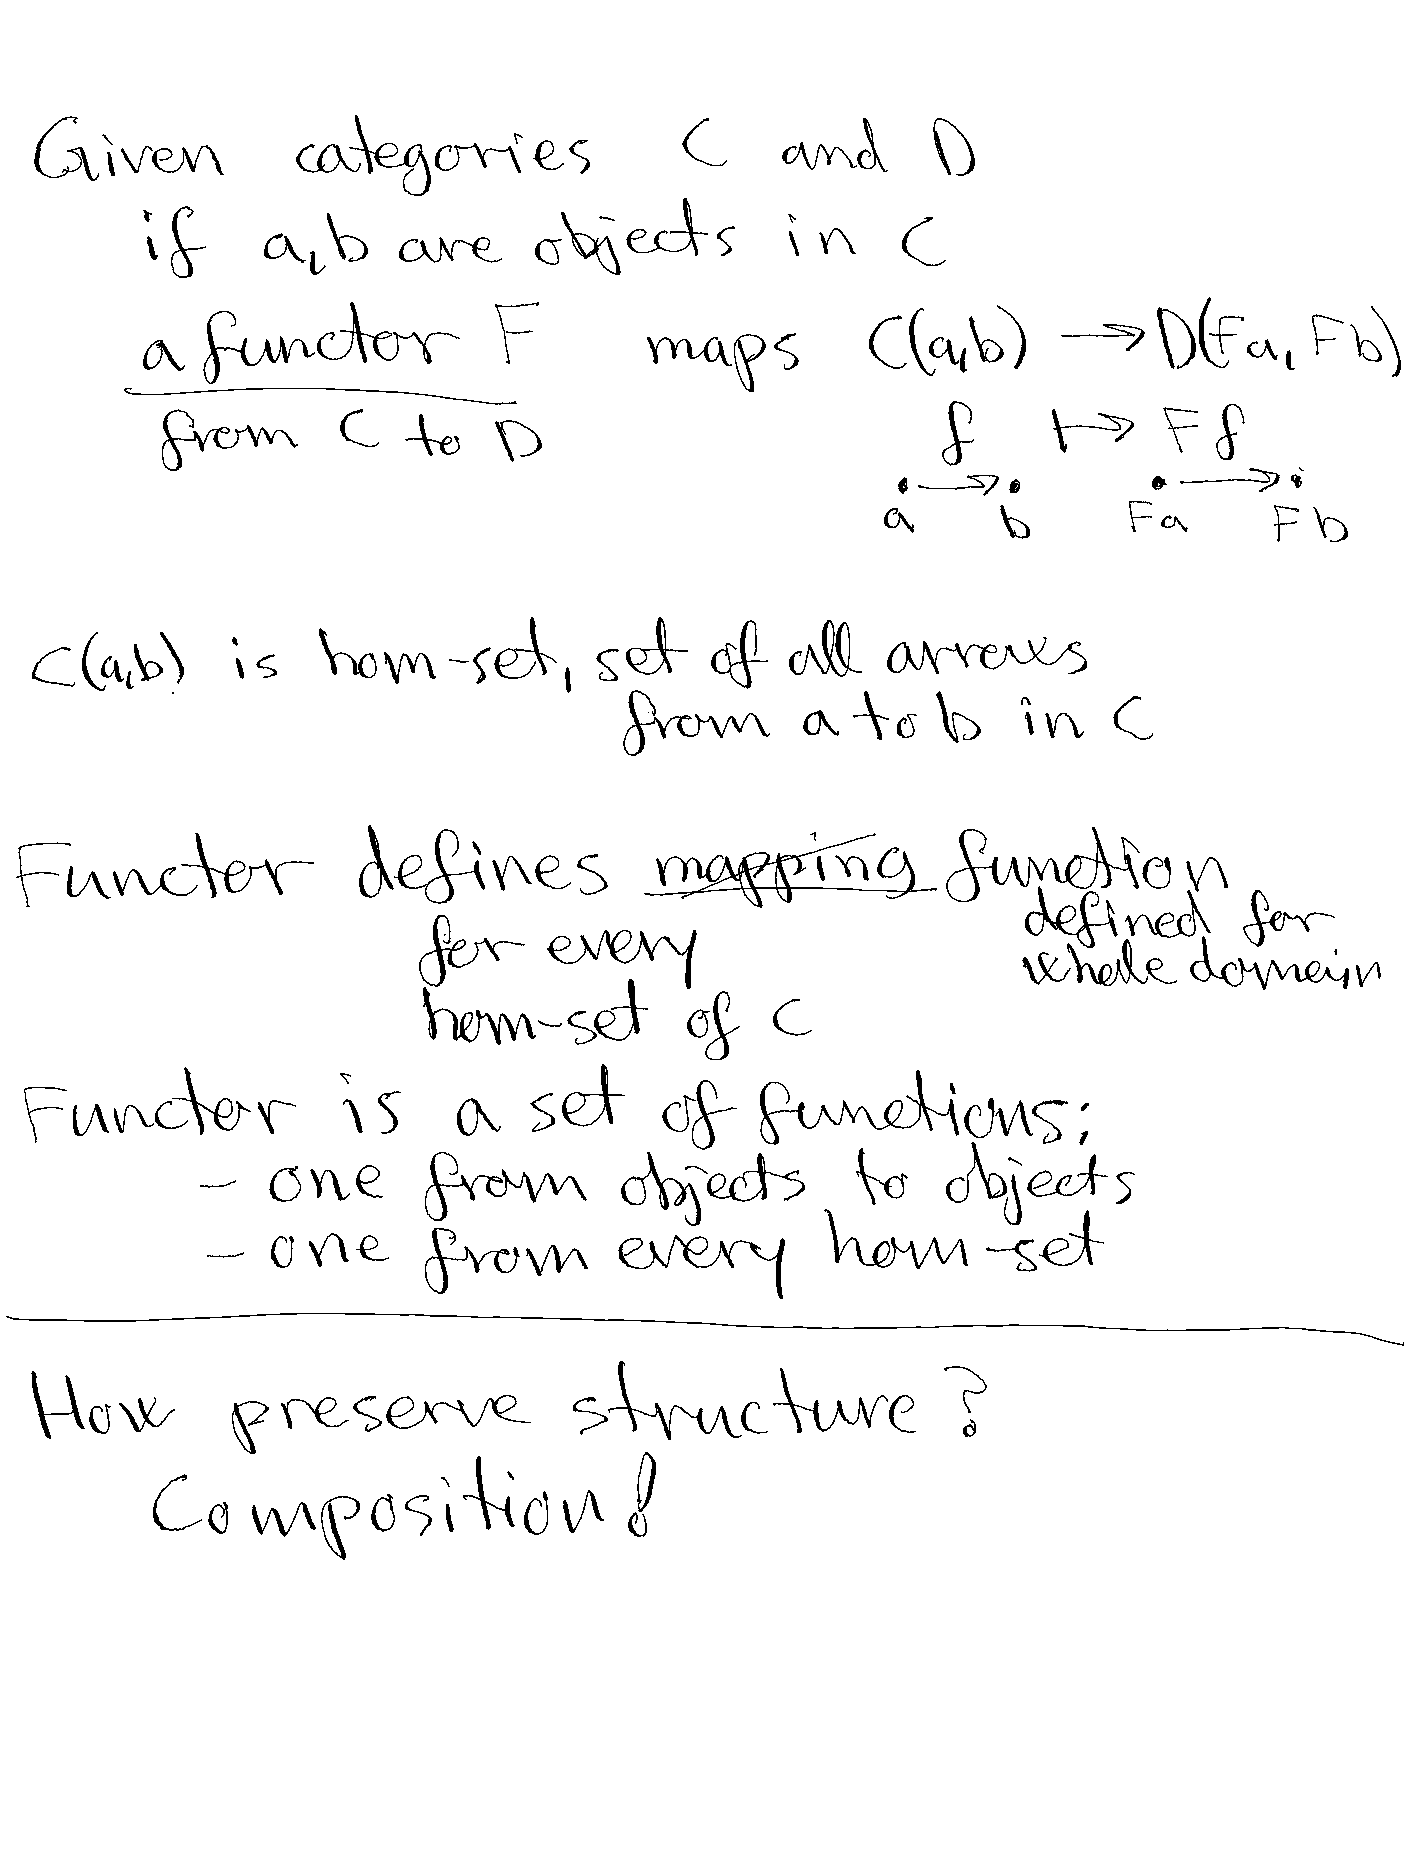 Given categories C and D
if a,b are objects in C
a functor F maps C(a,b) → D(Fa, Fb)
from C to D f ↦ Ff
• → • • → •
a b Fa Fb
C(a,b) is hom-set, set of all arrows
from a to b in C
Functor defines mapping function
for every defined for
whole domain
hom-set of C
Functor is a set of functions:
- one from objects to objects
- one from every hom-set
How preserve structure?
Composition!